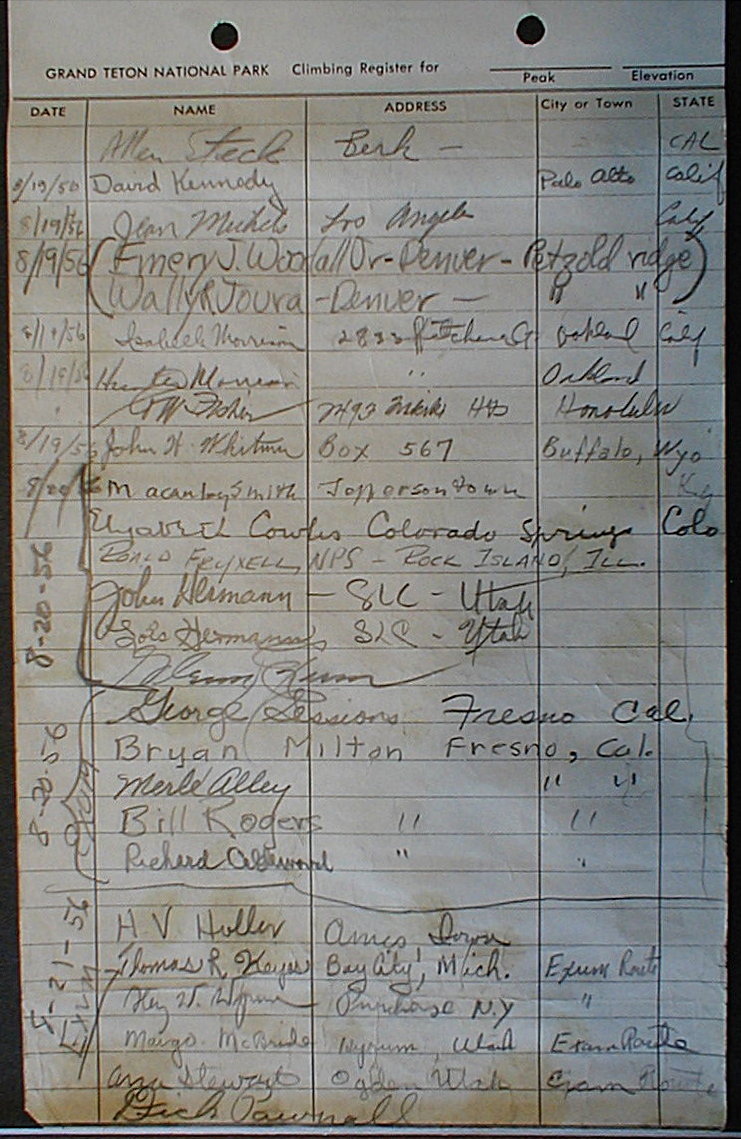 GRAND TETON NATIONAL PARK Climbing Register for
Peak Elevation
DATE NAME ADDRESS City or Town STATE
Allen Steck Berk - CAL
8/19/56 David Kennedy Palo Alto Calif
8/19/56 Jean Los Angeles Calif
8/19/56 Emery J. Woodall Jr - Denver - Petzold ridge
Wally R Joura - Denver - " "
8/19/56 Isabella Morrison Oakland Calif
8/19/56 Hunter Morrison " Oakland
" Fisher Hts Honolulu
8/19/56 John H. Whitman Box 567 Buffalo, Wyo
8/20/56 Macauley Smith Jeffersontown Ky
Elizabeth Cowles Colorado Springs Colo
Roald Fryxell, NPS - Rock Island, Ill.
John Hermann - SLC - Utah
Lois SLC - Utah
8-20-56
Glenn Exum
George Sessions Fresno Cal.
Bryan Milton Fresno, Cal.
8-20-56
Merle Alley " "
Bill Rogers " "
Richard " "
H V Holler Ames Iowa
8-21-56
Thomas R. Keyes Bay City, Mich. Exum Route
Purchase N.Y "
Exum
Margo McBride Hyrum, Utah Exum Route
Ann Stewart Ogden Utah Exum Route
Dick Pownall